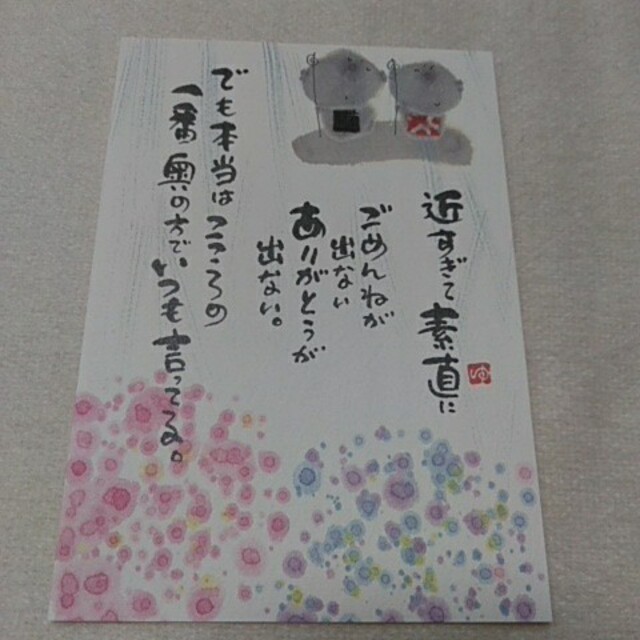 近すぎて素直に
ごめんねが
出ない
ありがとうが
出ない。
でも本当はこころの
一番奥の方で、いつも言ってる。